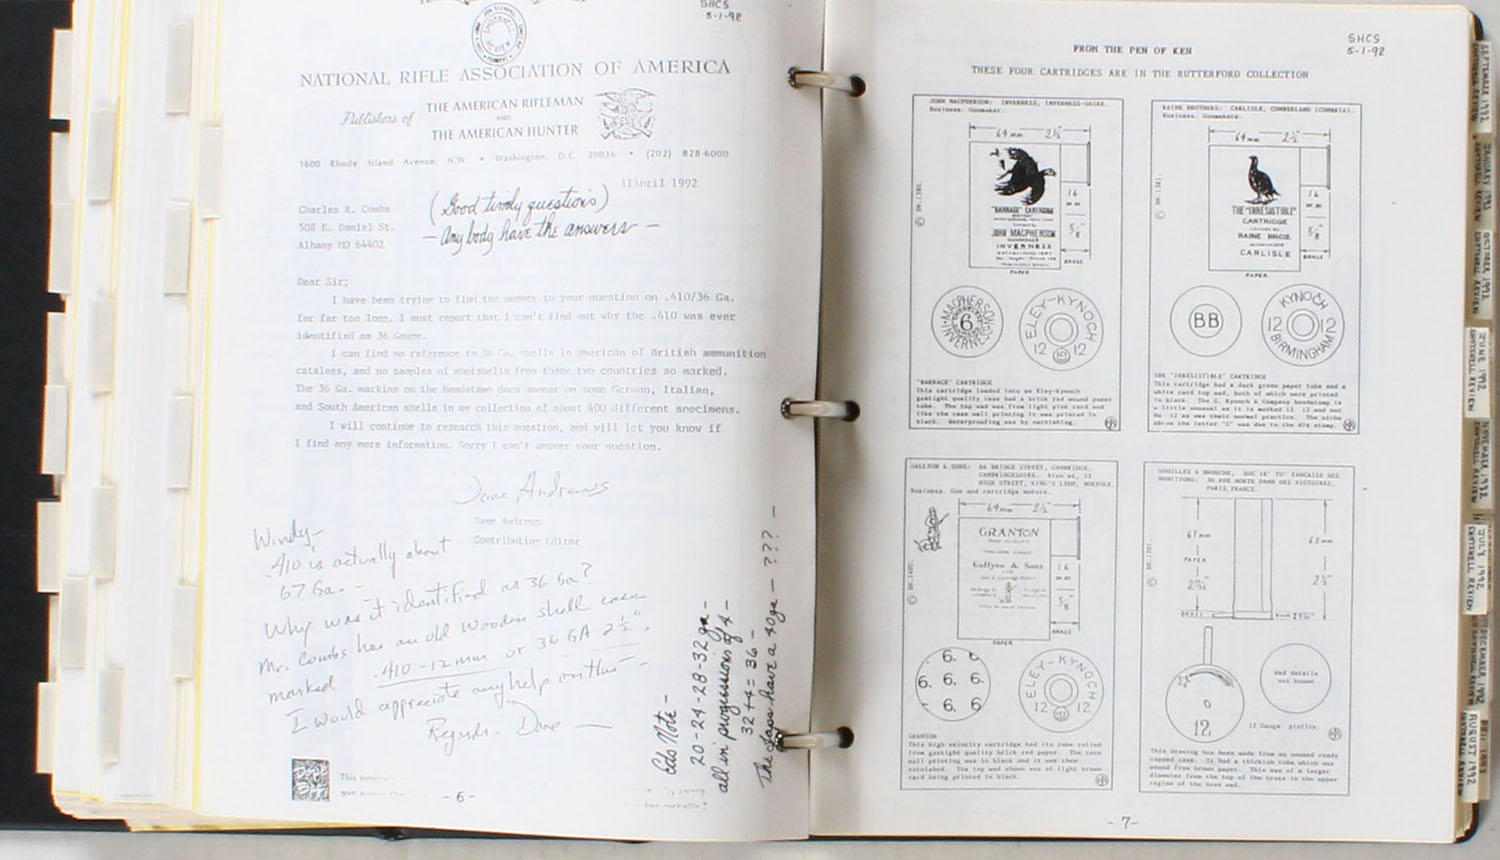 SHCS
5-1-92
SHOTSHELL
REVIEW
NATIONAL RIFLE ASSOCIATION OF AMERICA
Publishers of
THE AMERICAN RIFLEMAN
AND
THE AMERICAN HUNTER
1600 Rhode Island Avenue, N.W. • Washington, D.C. 20036 • (202) 828-6000
11 April 1992
Charles R. Combs
508 E. Daniel St.
Albany MO 64402
(Good timly questions)
- Any body have the answers -
Dear Sir;
I have been trying to find the answer to your question on .410/36 Ga.
for far too long. I must report that I can't find out why the .410 was ever
identified as 36 Gauge.
I can find no reference to 36 Ga. shells in American of British ammunition
catalogs, and no samples of shotshells from these two countries so marked.
The 36 Ga. marking on the headstamp does appear on some German, Italian,
and South American shells in my collection of about 400 different specimens.
I will continue to research this question, and will let you know if
I find any more information. Sorry I can't answer your question.
Dave Andrews
Dave Andrews
Contributing Editor
Windy-
.410 is actually about
67 Ga. -
Why was it identified as 36 Ga?
Mr. Combs has an old wooden shell case
marked .410-12mm or 36 GA 2½".
I would appreciate any help on this -
Regards - Dave
Eds Note -
20-24-28-32 ga -
all in progressions of 4 -
32+4=36 -
The Japs have a 40ga - ??? -
This
- 6 -
SHCS
5-1-92
FROM THE PEN OF KEN
THESE FOUR CARTRIDGES ARE IN THE RUTTERFORD COLLECTION
JOHN MACPHERSON: INVERNESS, INVERNESS-SHIRE.
Business. Gunmaker.
64mm 2½"
"BARRAGE" CARTRIDGE
JOHN MACPHERSON
INVERNESS
16
5/8"
BRASS
PAPER
MACPHERSON
6
INVERNESS
ELEY-KYNOCH
12 12
"BARRAGE" CARTRIDGE
This cartridge loaded into an Eley-Kynoch
gastight quality case had a brick red wound paper
tube. The top wad was from light pink card and
like the case wall printing it was printed in
black. Waterproofing was by varnishing.
RAINE BROTHERS: CARLISLE, CUMBERLAND (CUMBRIA).
Business. Gunmakers.
64mm 2½"
THE "IRRESISTIBLE"
CARTRIDGE
RAINE BROS.
CARLISLE
16
5/8"
BRASS
PAPER
BB
KYNOCH
12 12
BIRMINGHAM
THE "IRRESISTIBLE" CARTRIDGE
This cartridge had a dark green paper tube and a
white card top wad, both of which were printed
in black. The G. Kynoch & Company headstamp is
a little unusual as it is marked 12 12 and not
No 12 as was their normal practice. The niche
above the letter "C" was due to the die stamp.
GALLYON & SONS: 66 BRIDGE STREET, CAMBRIDGE,
CAMBRIDGESHIRE. Also at, 52
HIGH STREET, KING'S LYNN, NORFOLK.
Business. Gun and cartridge makers.
64mm 2½"
GRANTON
Gallyon & Sons
LTD.
16
5/8"
BRASS
PAPER
6. 6.
6. 6. 6.
6. 6.
ELEY-KYNOCH
12 12
GRANTON
This high velocity cartridge had its tube rolled
from gastight quality brick red paper. The case
wall printing was in black and it was then
varnished. The top wad shown was of light brown
card being printed in black.
DOUILLES A BROCHE,
MUNITIONS: 30 RUE NOTRE DAME DES VICTOIRES,
PARIS, FRANCE.
61mm
PAPER
BRASS
65mm
12
Wad details
not known
12 Gauge pinfire.
This drawing has been made from an unused ready
capped case. It had a thickish tube which was
wound from brown paper. This was of a larger
diameter from the top of the brass to the upper
region of the base wad.
- 7 -
SEPTEMBER 1992
JANUARY 1993
OCTOBER 1992
JUNE 1992
NOVEMBER 1992
JULY 1992
DECEMBER 1992
AUGUST 1992